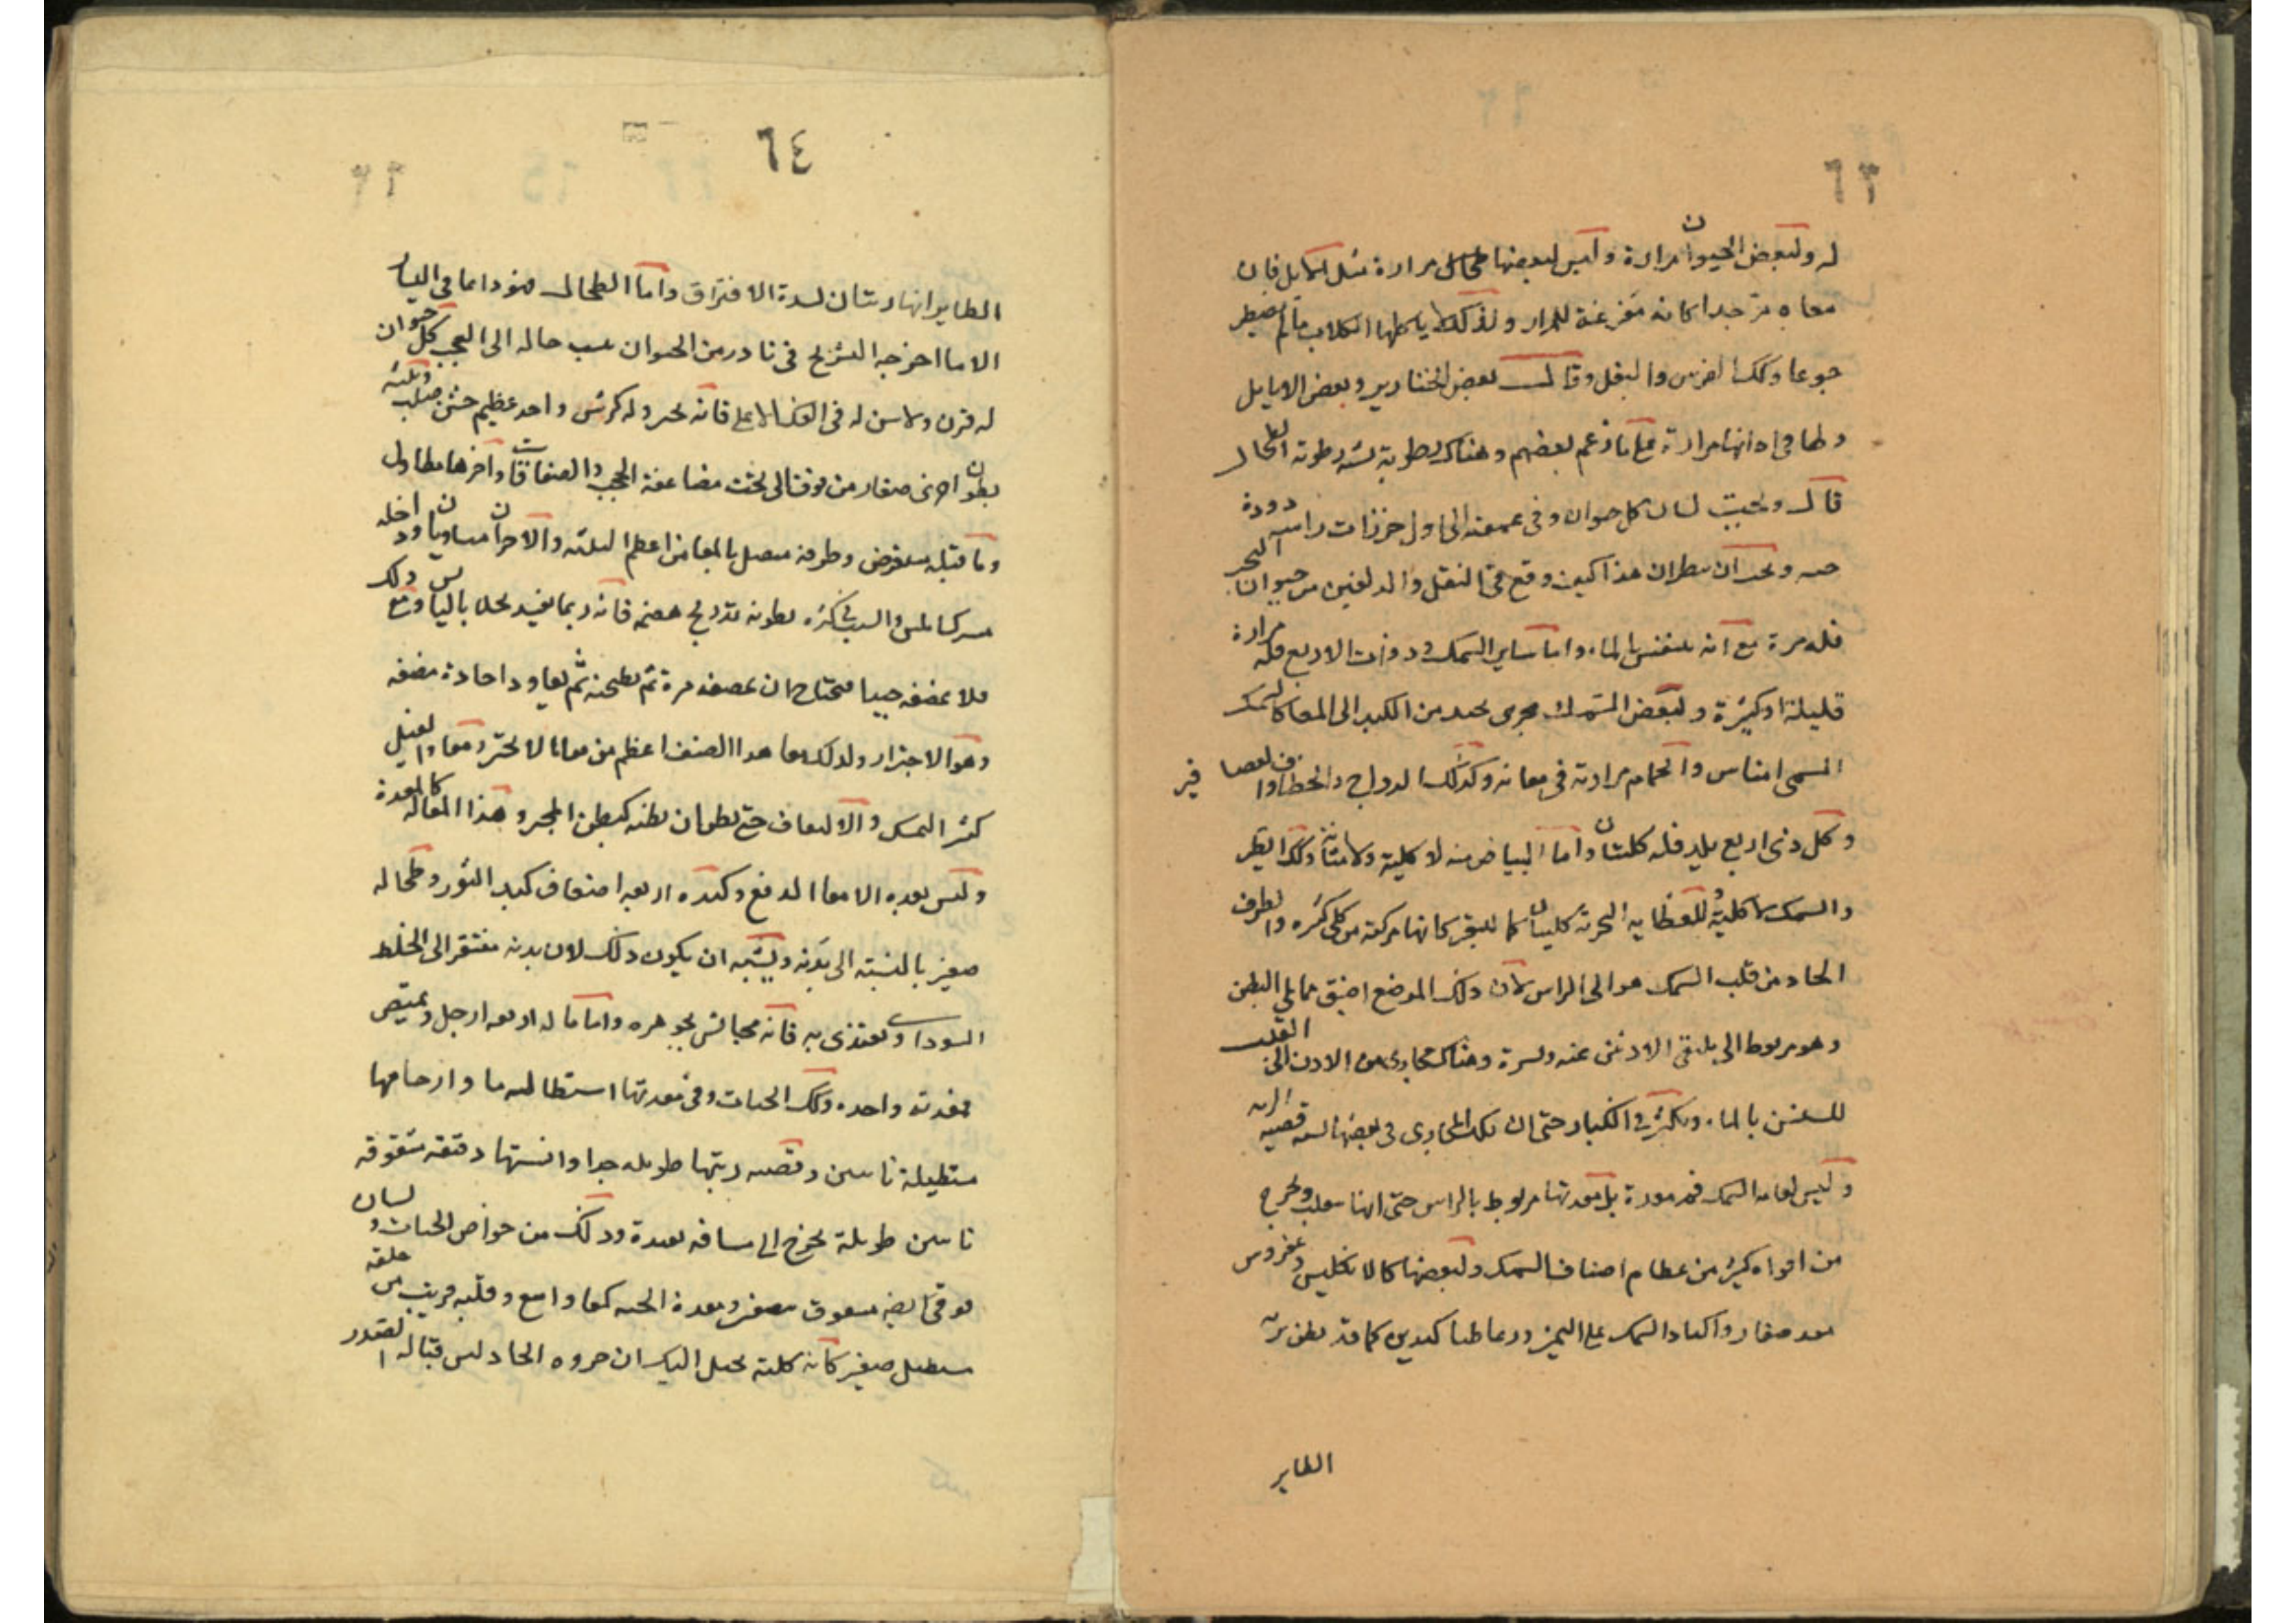 ٦٣
له ولبعض الحيوان مرارة وليس لبعضها طحال مرارة مثل الابل فان
معاه مر جدا كانه مفرغة للمرار ولذلك لا ياكلها الكلاب ما لم يضطر
جوعا وكذلك الفرس والبغل وقالت بعض الخنازير وبعض الايايل
وظافى اذانها مرارة على ما زعم بعضهم وهناك رطوبة يشبه رطوبة الطحال
قال وتحت لسان كل حيوان وفى عمقه الى اول خرزات راسه دودة
حيه ويجب ان ينظر ان هذا كيف وقع فى النقل والدلفين من حيوان البحر
فله مرة مع انه يتنفس بالماء واما ساير السمك وذوات الاربع فله مرارة
قليلة او كثيرة ولبعض السمك مجرى يمتد من الكبد الى المعا كالسمك
المسمى امناس والحمام مرارته فى معائه وكذلك الدراج والخطاف والعصا فير
وكل ذى اربع يلد فله كليتان واما البياض منه لا كلية ولا مثانة وكذلك الطير
والسمك لا كلية وللعظاية البحرية كليتان كما للبقر كانها مركبة من كلى كثيره والطرف
الحاد من قلب السمك هو الى الراس لان ذلك الموضع اضيق مما يلي البطن
وهو مربوط الى ملتقى الاذنين عنه ويسرة وهناك مجارى من الاذن الى القلب
للتنفس بالماء ويكثر فى الكبار حتى ان تلك المجارى فى بعضها يشبه قصبة الرية
وليس لعامة السمك فم معدة بل معدتها مربوط بالراس حتى انها ينقلب ويخرج
من افواه كثير من عظام اصناف السمك ولبعضها كالانكليس وغفروس
معد صغار واكباد السمك على اليمين وربما ظنا كبدين كما قد يظن برية
الطاير
٦٤
الطاير انها رئتان لشدة الافتراق واما الطحال فهو دايما فى اليسار
الا ما اخرجه التشريح فى نادر من الحيوان ينسب حاله الى العجب كل حيوان
له قرن ولا سن له فى الفك الاعلى فانه يجتر وله كرش واحد عظيم خشن صلب وثلثه
بطون اخرى صغار من فوق الى تحت مضاعفة الحجب والصفاقات واخرها مطاول
وما قبله مستعرض وطرفه متصل بالمعا من اعظم الثلثه والاخران متساويان وداخله
مركبا لمس والسبب فى كثره بطونه تدريج هضمه فانه ربما يغيد بحلا باليابس وذلك مع
فلا يمضغه جيدا فيحتاج ان يمضغه مرة ثم يطحنه ثم يعاود اعادة مضغه
وهو الاجترار ولذلك معا هذا الصنف اعظم من معا ما لا يجتر ومعا والفيل
كثير التمسك والالتفاف حتى يظن ان بطنه كبطن المجتر وهذا المعا له كالمعدة
وليس بعده الا معا الدفع وكبده اربعه اضعاف كبد الثور وطحاله
صغير بالنسبة الى بدنه ويشبه ان يكون ذلك لان بدنه مفتقر الى الخلط
السوداوى يغتذى به فانه مجانس بجوهره واما ما له اربعة ارجل ويمتص
فمعدته واحده وكذلك الحيات وفى معدتها استطالة ما وارحامها
مستطيلة ناسين وقصبه ريتها طويله جدا والسنتها دقيقه مشقوقه
ناسين طويلة يخرج الى مسافه بعيدة وذلك من خواص الحيات ولسان
فوقى ايضا مشقوق صغير ومعدة الحيه كمعا واسع وقلبه قريب من حلقه
مستطيل صغير كانه كلية يخيل اليك ان جزوه الحاد ليس قبالة الصدر